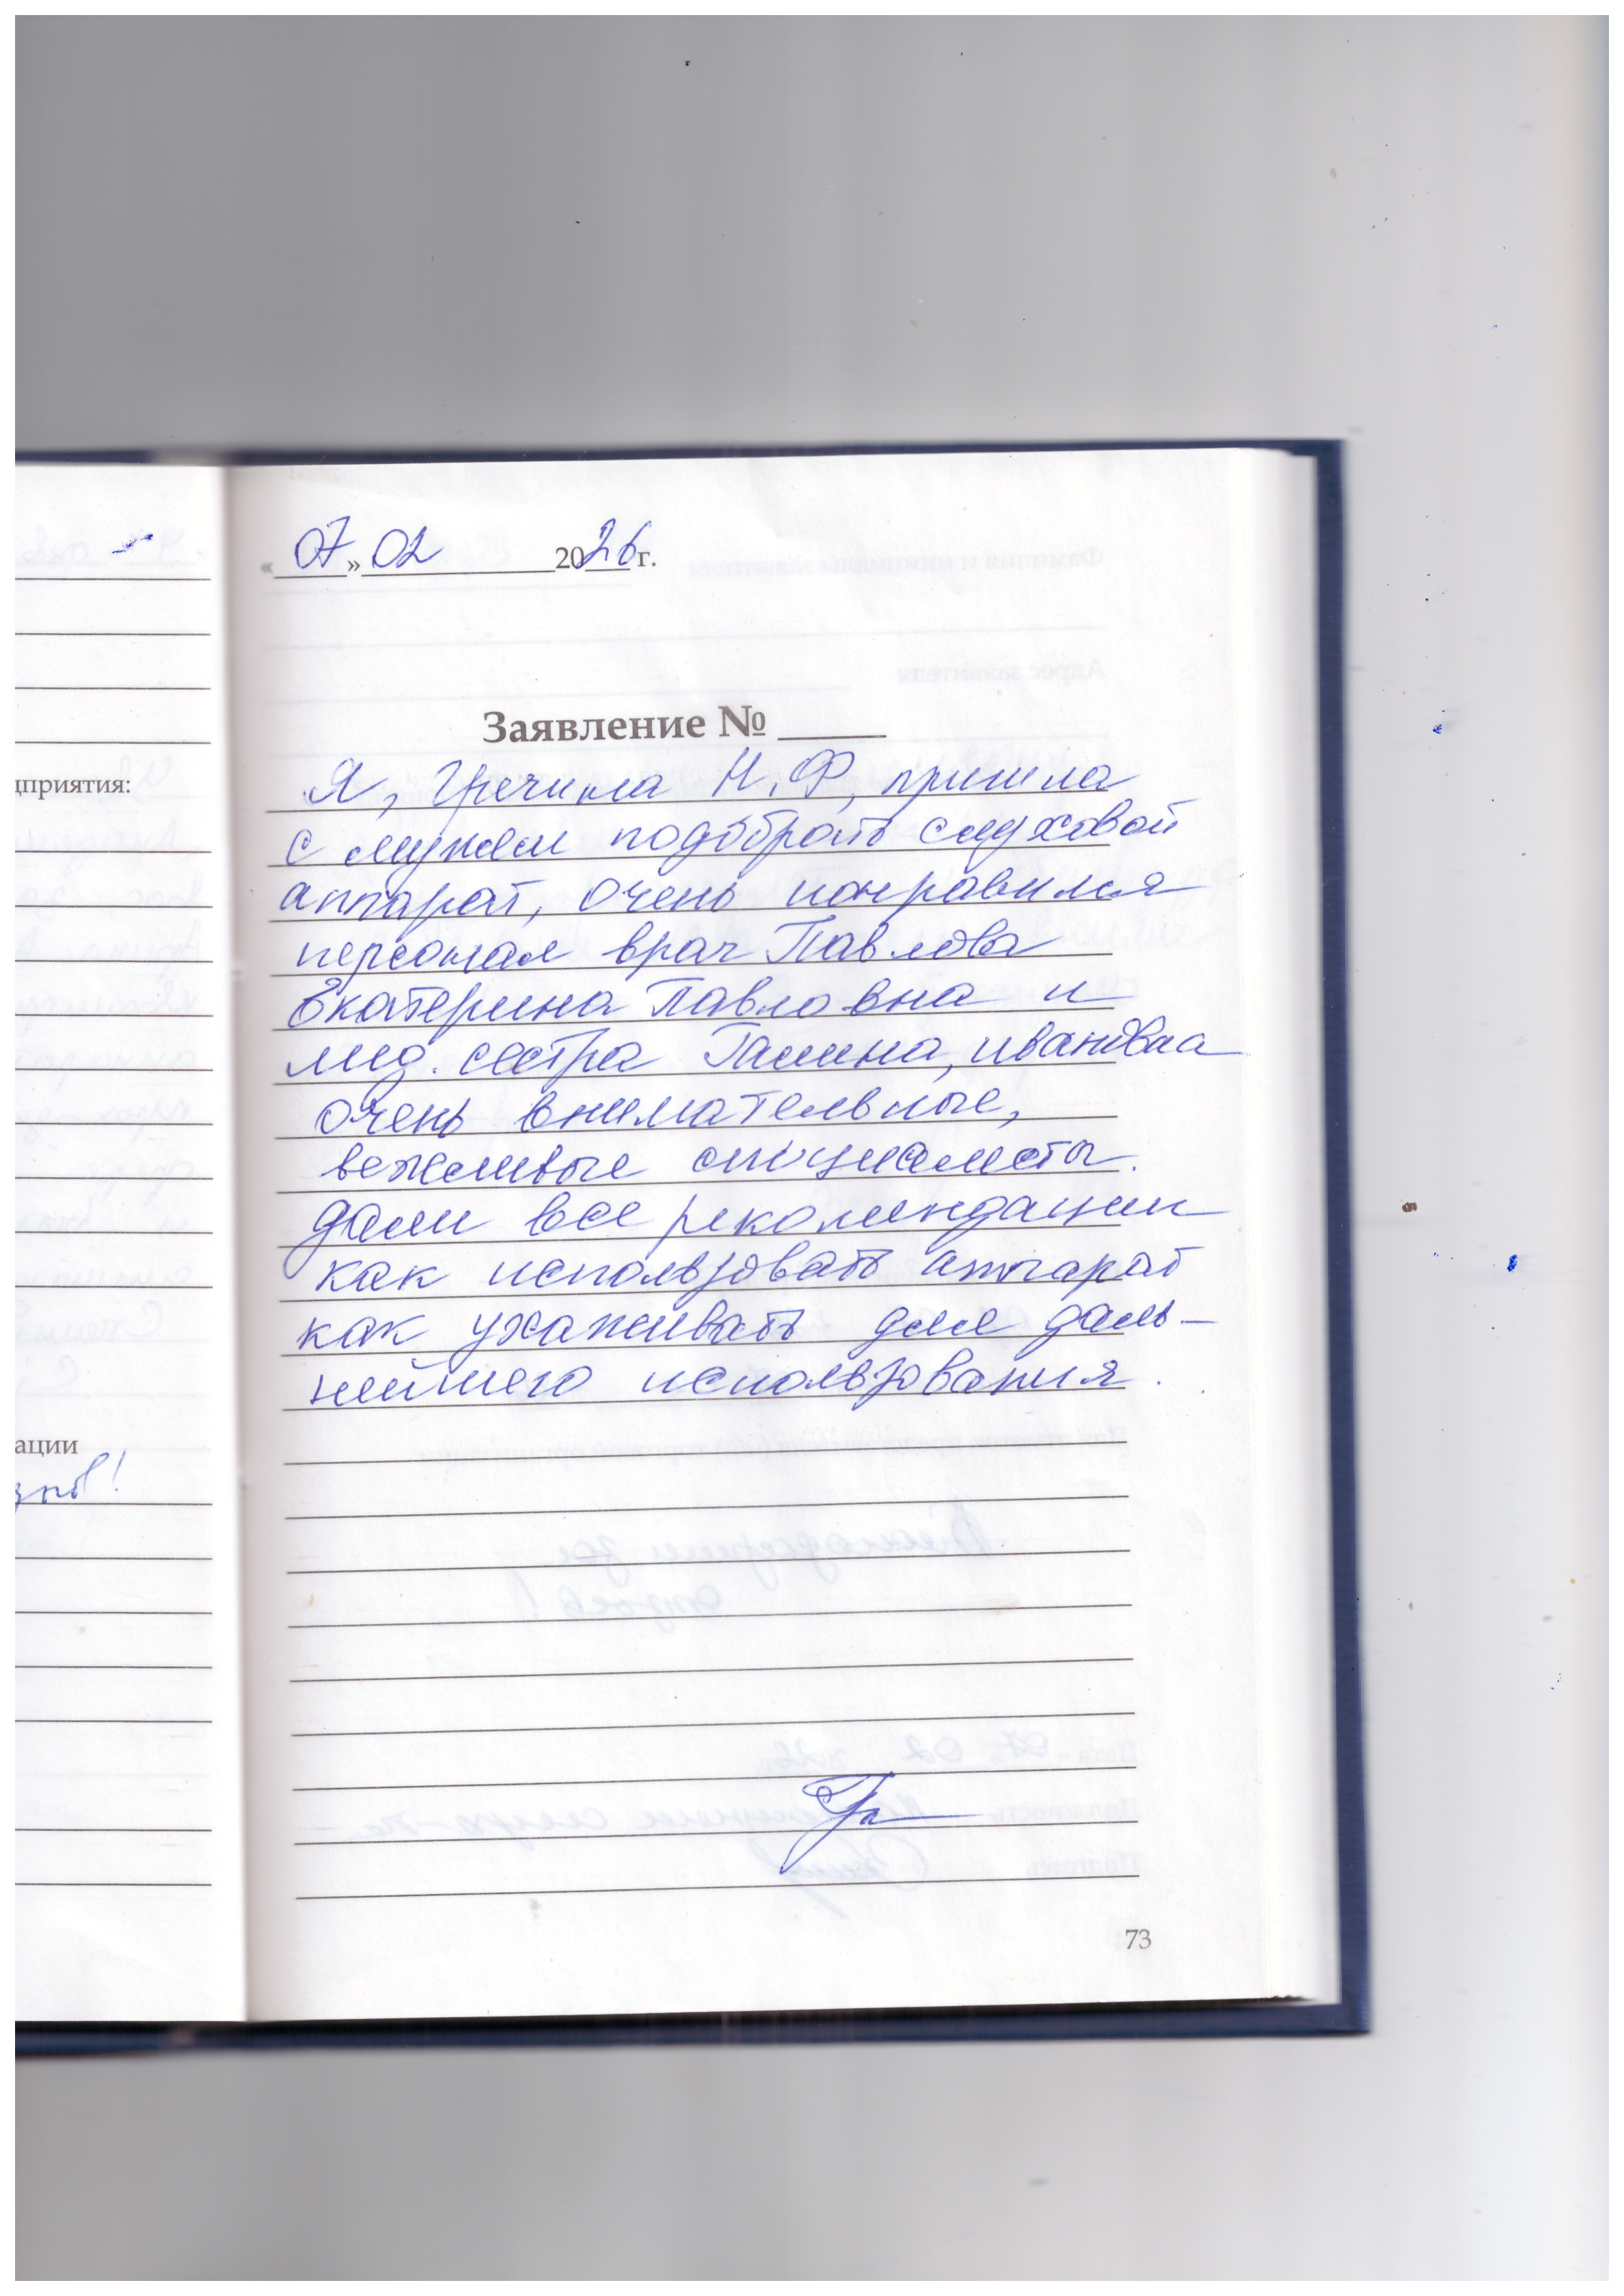 «07» 02 2026 г.
Заявление №
Я, Гречина Н.Ф, пришла
с мужем подобрать слуховой
аппарат, очень понравился
персонал врач Павлова
Екатерина Павловна и
мед. сестра Галина, ивановна
очень внимательные,
вежливые специалисты.
дали все рекомендации
как использовать аппарат
как ухаживать для даль-
нейшего использования.
73
дприятия:
ации